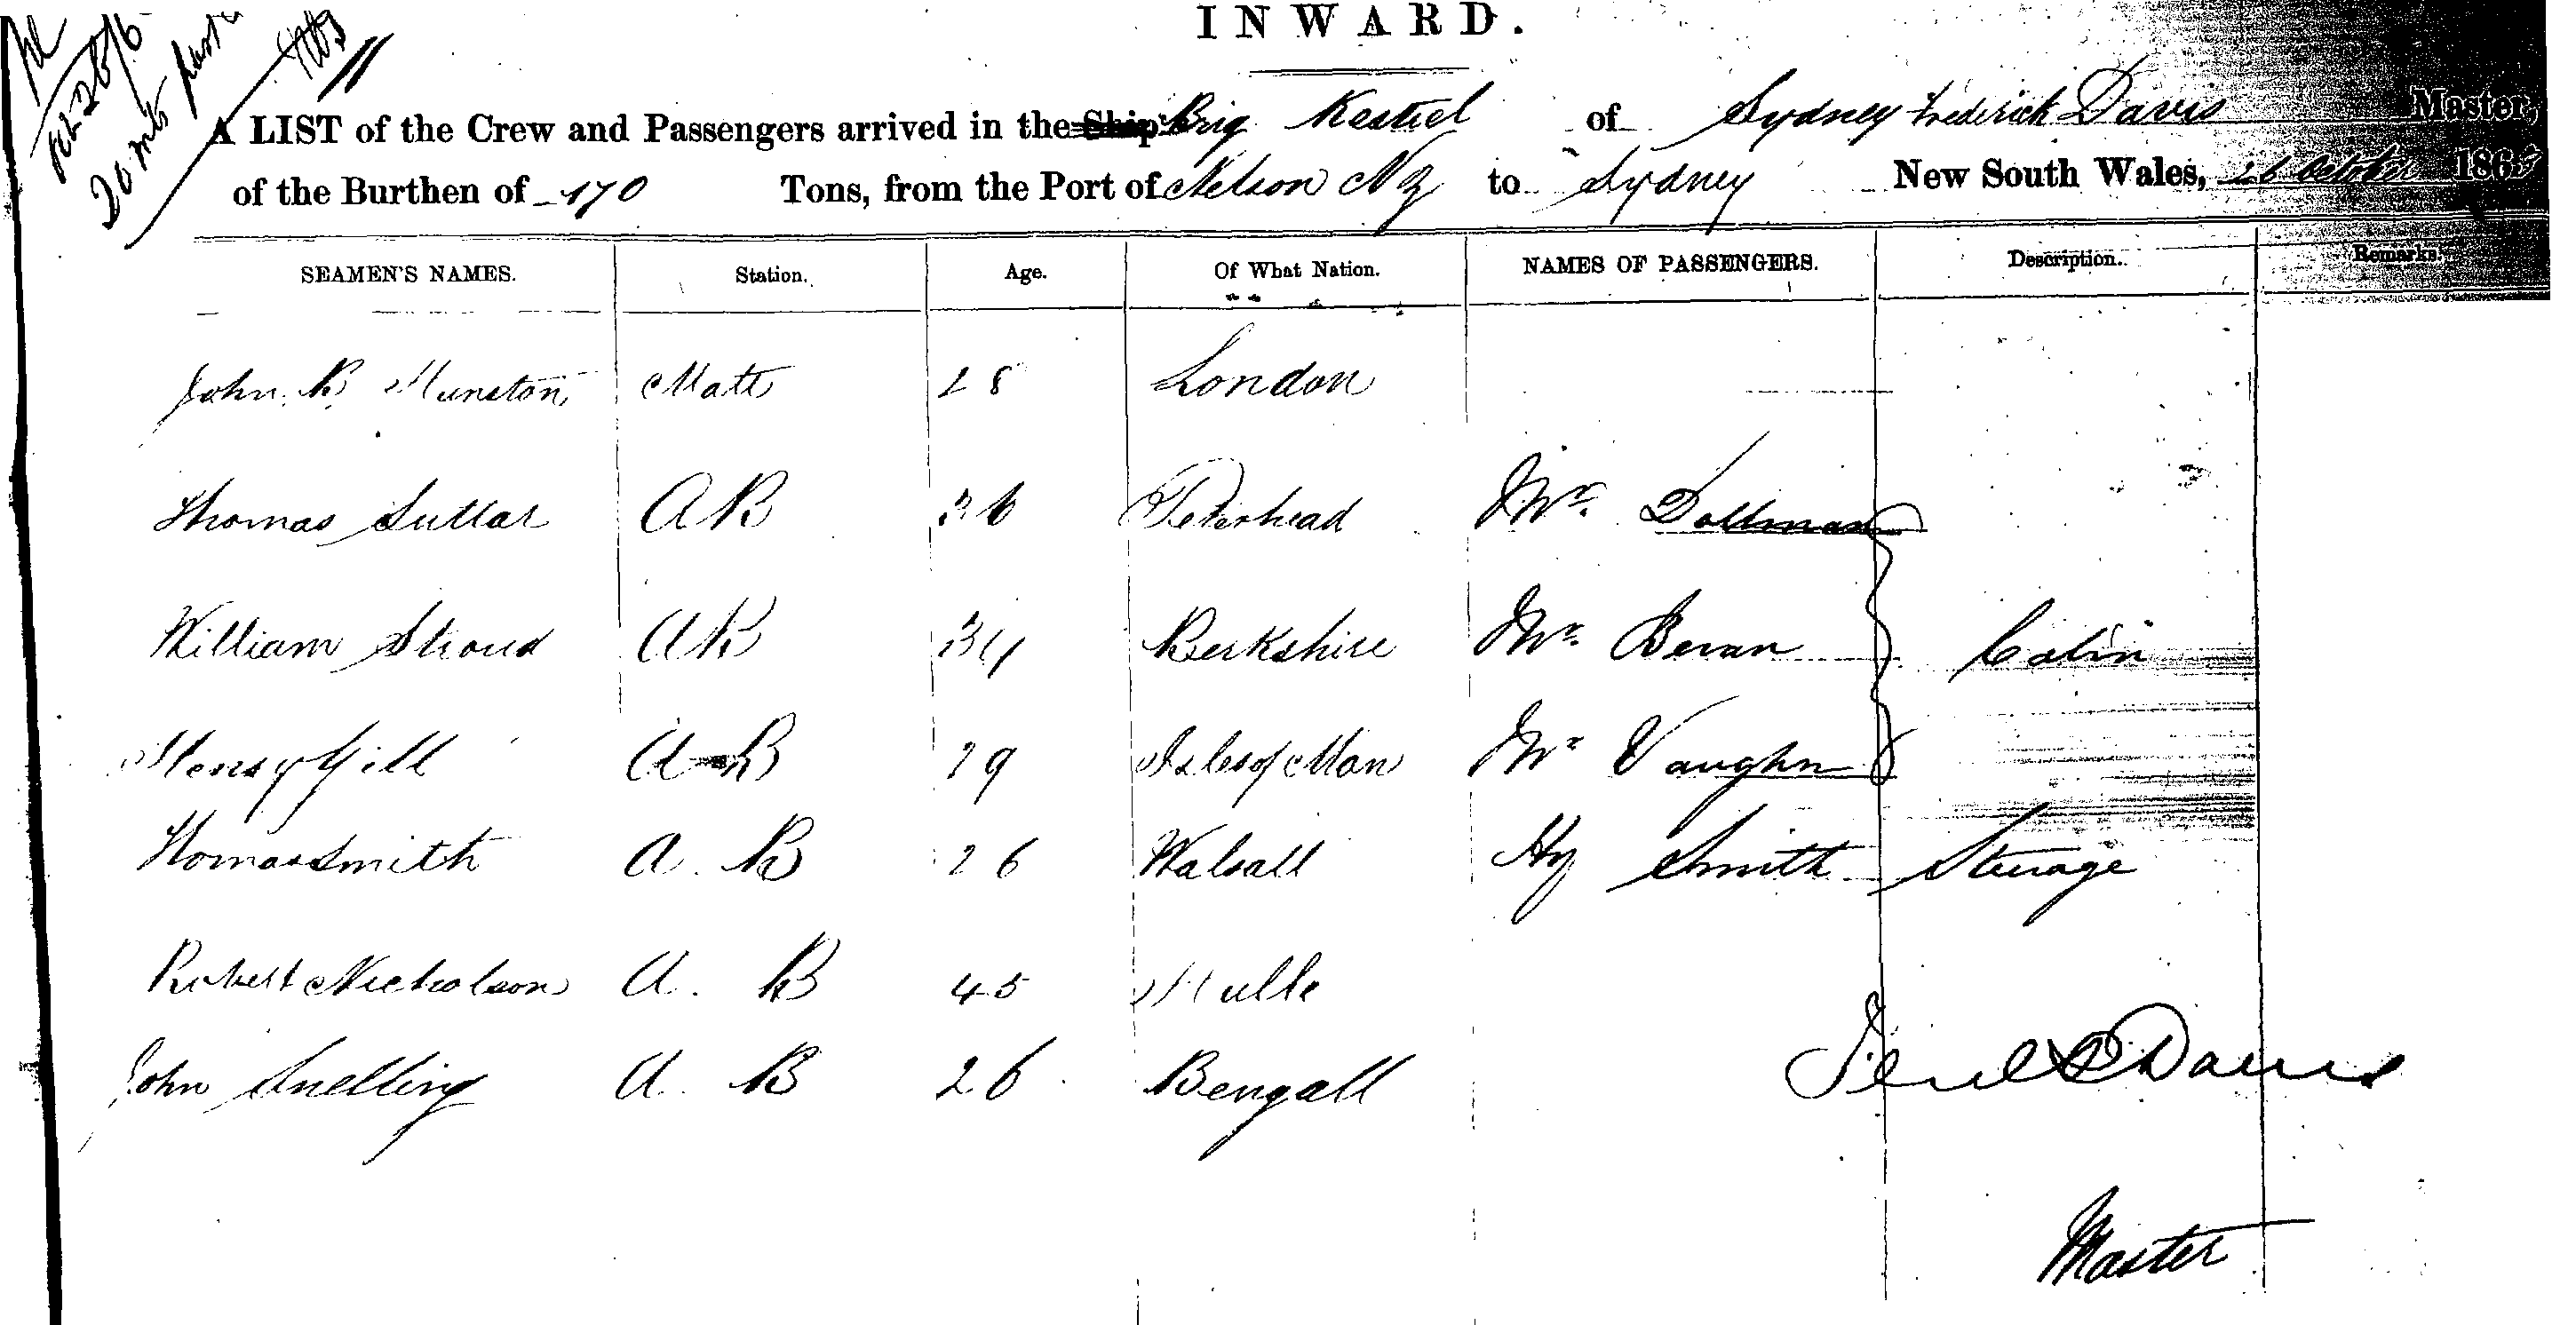 INWARD.
A LIST of the Crew and Passengers arrived in the Ship Brig Kestrel of Sydney Frederick Davis Master,
of the Burthen of 170 Tons, from the Port of Nelson NZ to Sydney New South Wales, 26 October 186
SEAMEN'S NAMES. Station. Age. Of What Nation. NAMES OF PASSENGERS. Description. Remarks.
John R Munston Mate 28 London
Thomas Suttar AB 36 Peterhead Mr. Dollman
William Stroud AB 34 Berkshire Mr. Bevan Cabin
Henry Gill A B 29 Isle of Man Mr Vaughn
Thomas Smith A. B 26 Walsall Hy Smith Sterage
Robert Nicholson A. B 45 Hulle
John Snelling A. B 26 Bengall
Davis
Master